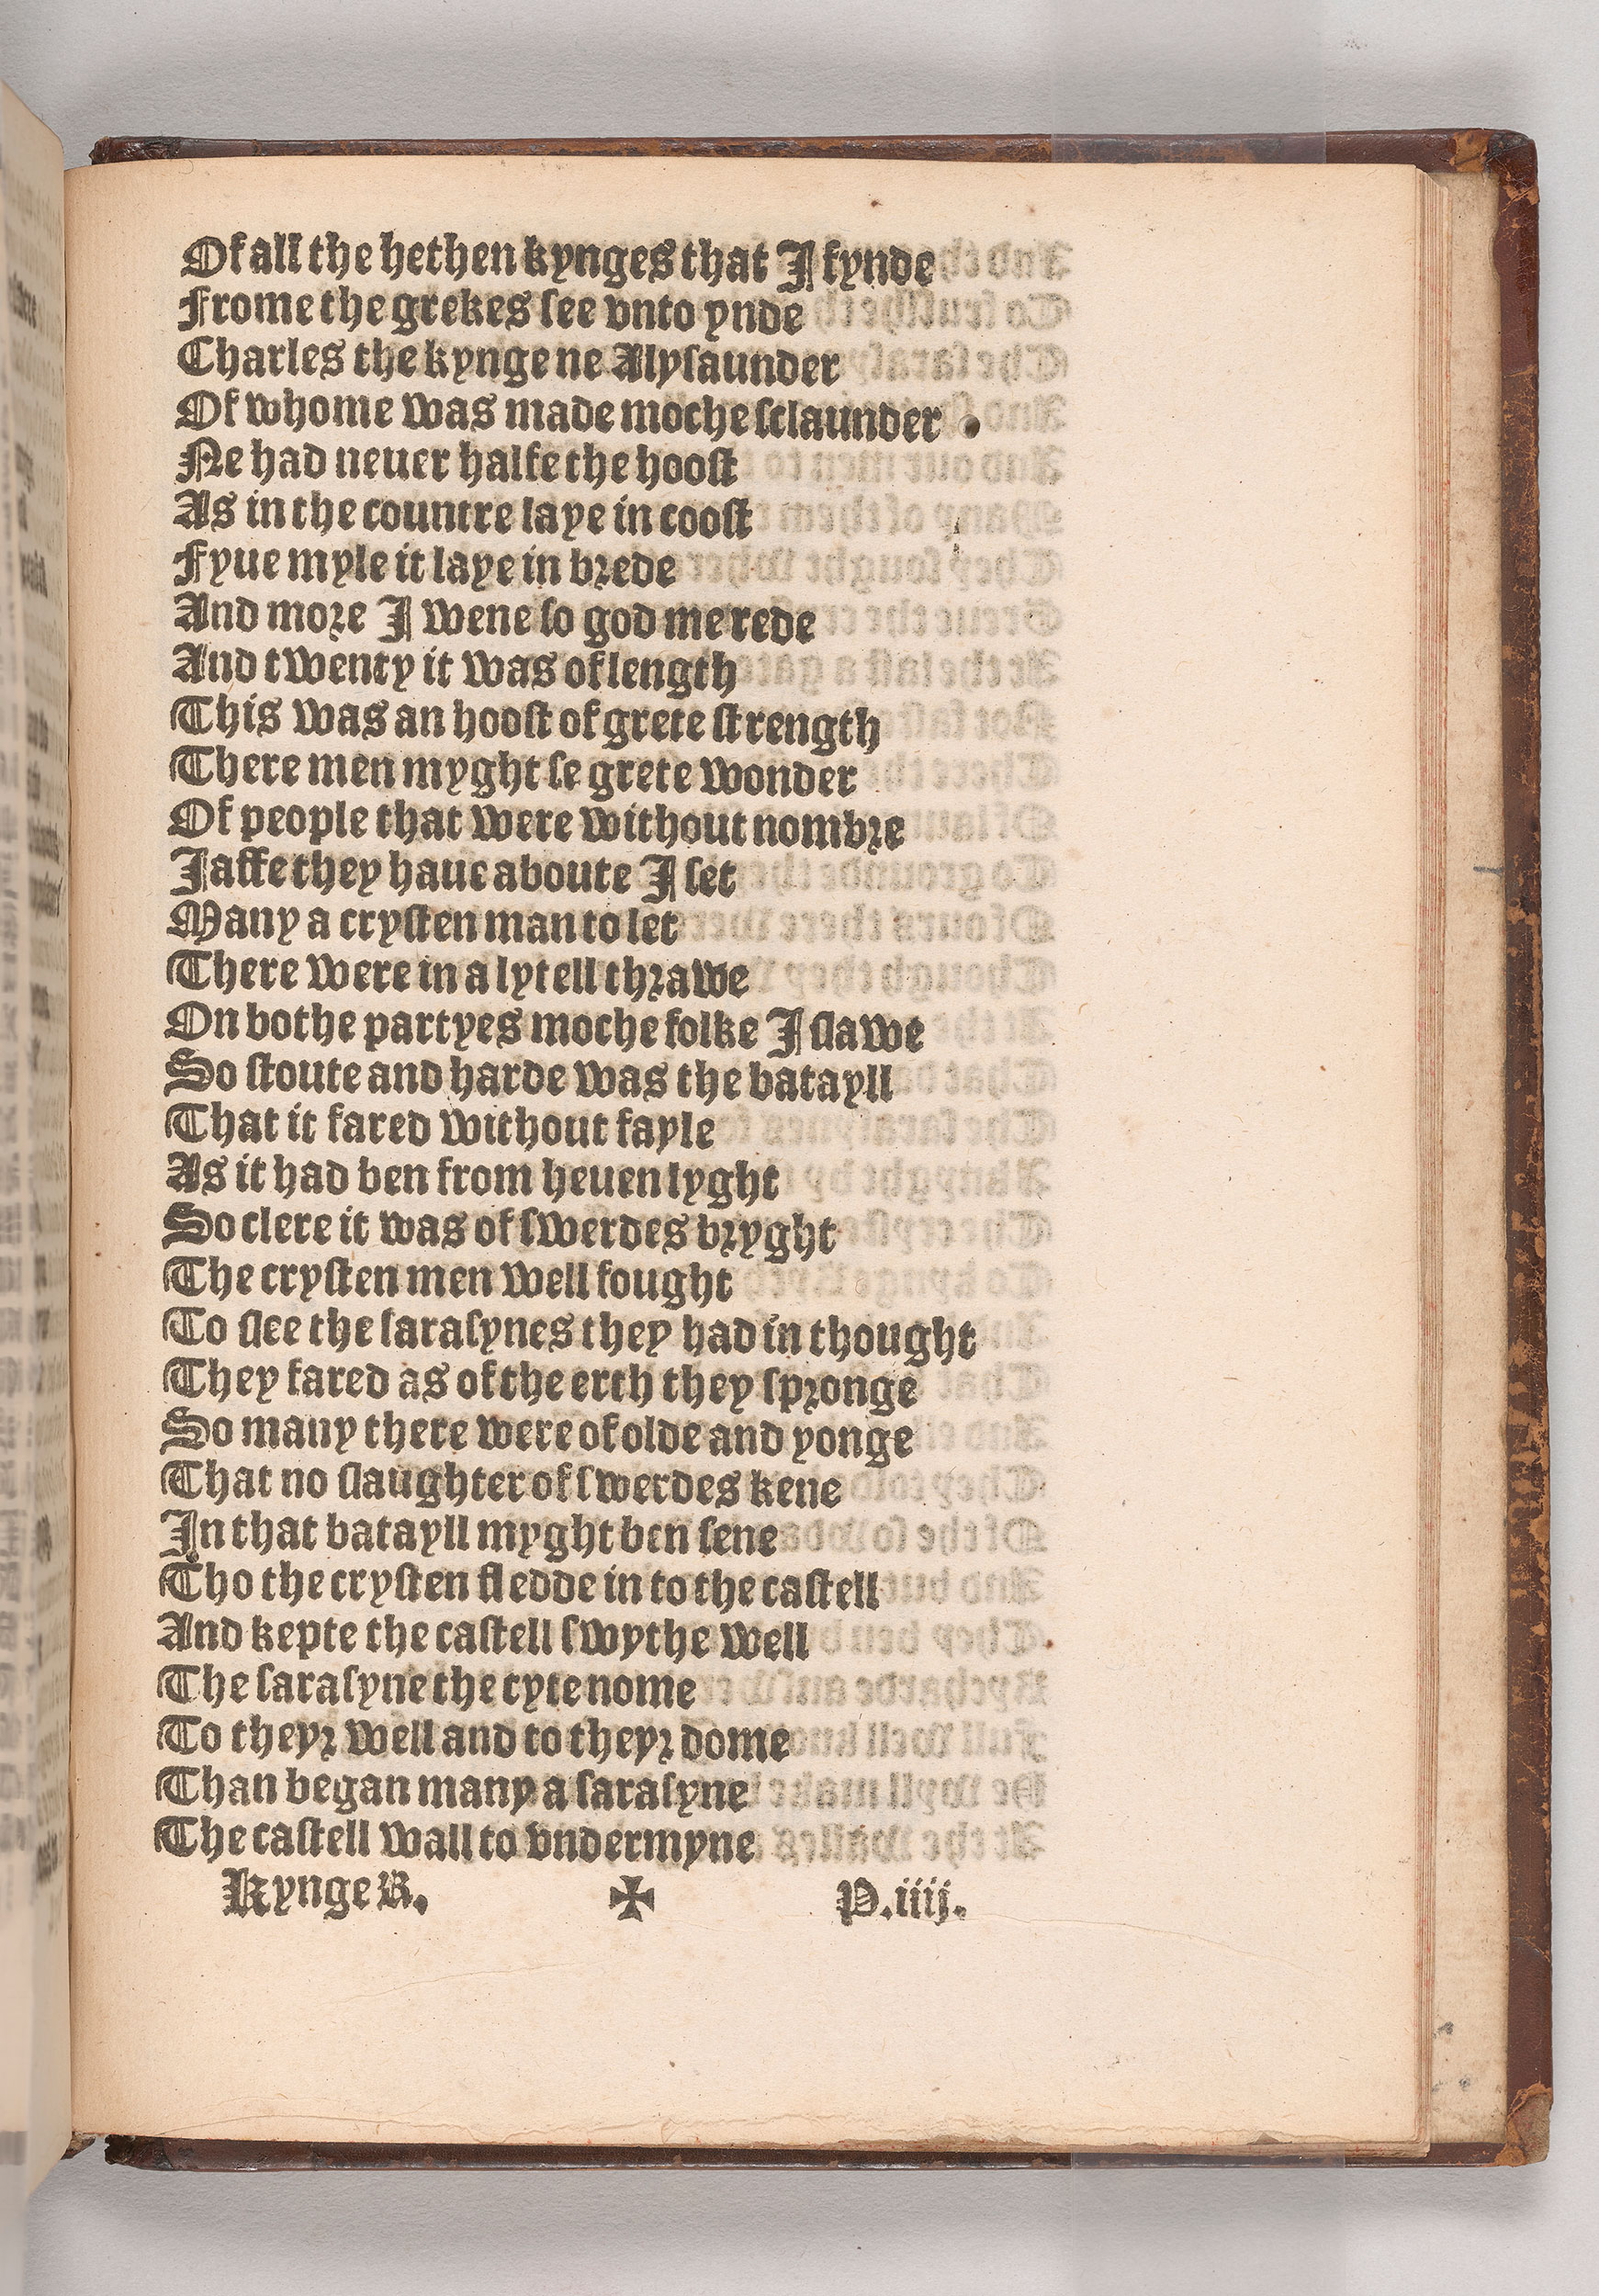 Of all the hethen kynges that I fynde
Frome the grekes see vnto ynde
Charles the kynge ne Alysaunder
Of whome was made moche sclaunder
Ne had neuer halfe the hoost
As in the countre laye in coost
Fyue myle it laye in brede
And more I wene so god me rede
And twenty it was of length
This was an hoost of grete strength
There men myght se grete wonder
Of people that were without nombre
Jaffe they haue aboute I set
Many a crysten man to let
There were in a lytell thrawe
On bothe partyes moche folke I slawe
So stoute and harde was the batayll
That it fared without fayle
As it had ben from heuen lyght
So clere it was of swerdes bryght
The crysten men well fought
To slee the sarasynes they had in thought
They fared as of the erth they spronge
So many there were of olde and yonge
That no slaughter of swerdes kene
In that batayll myght ben sene
Tho the crysten fledde in to the castell
And kepte the castell swythe well
The sarasyne the cyte nome
To theyr well and to theyr dome
Than began many a sarasyne
The castell wall to vndermyne
Kynge R. ✠ P.iiij.